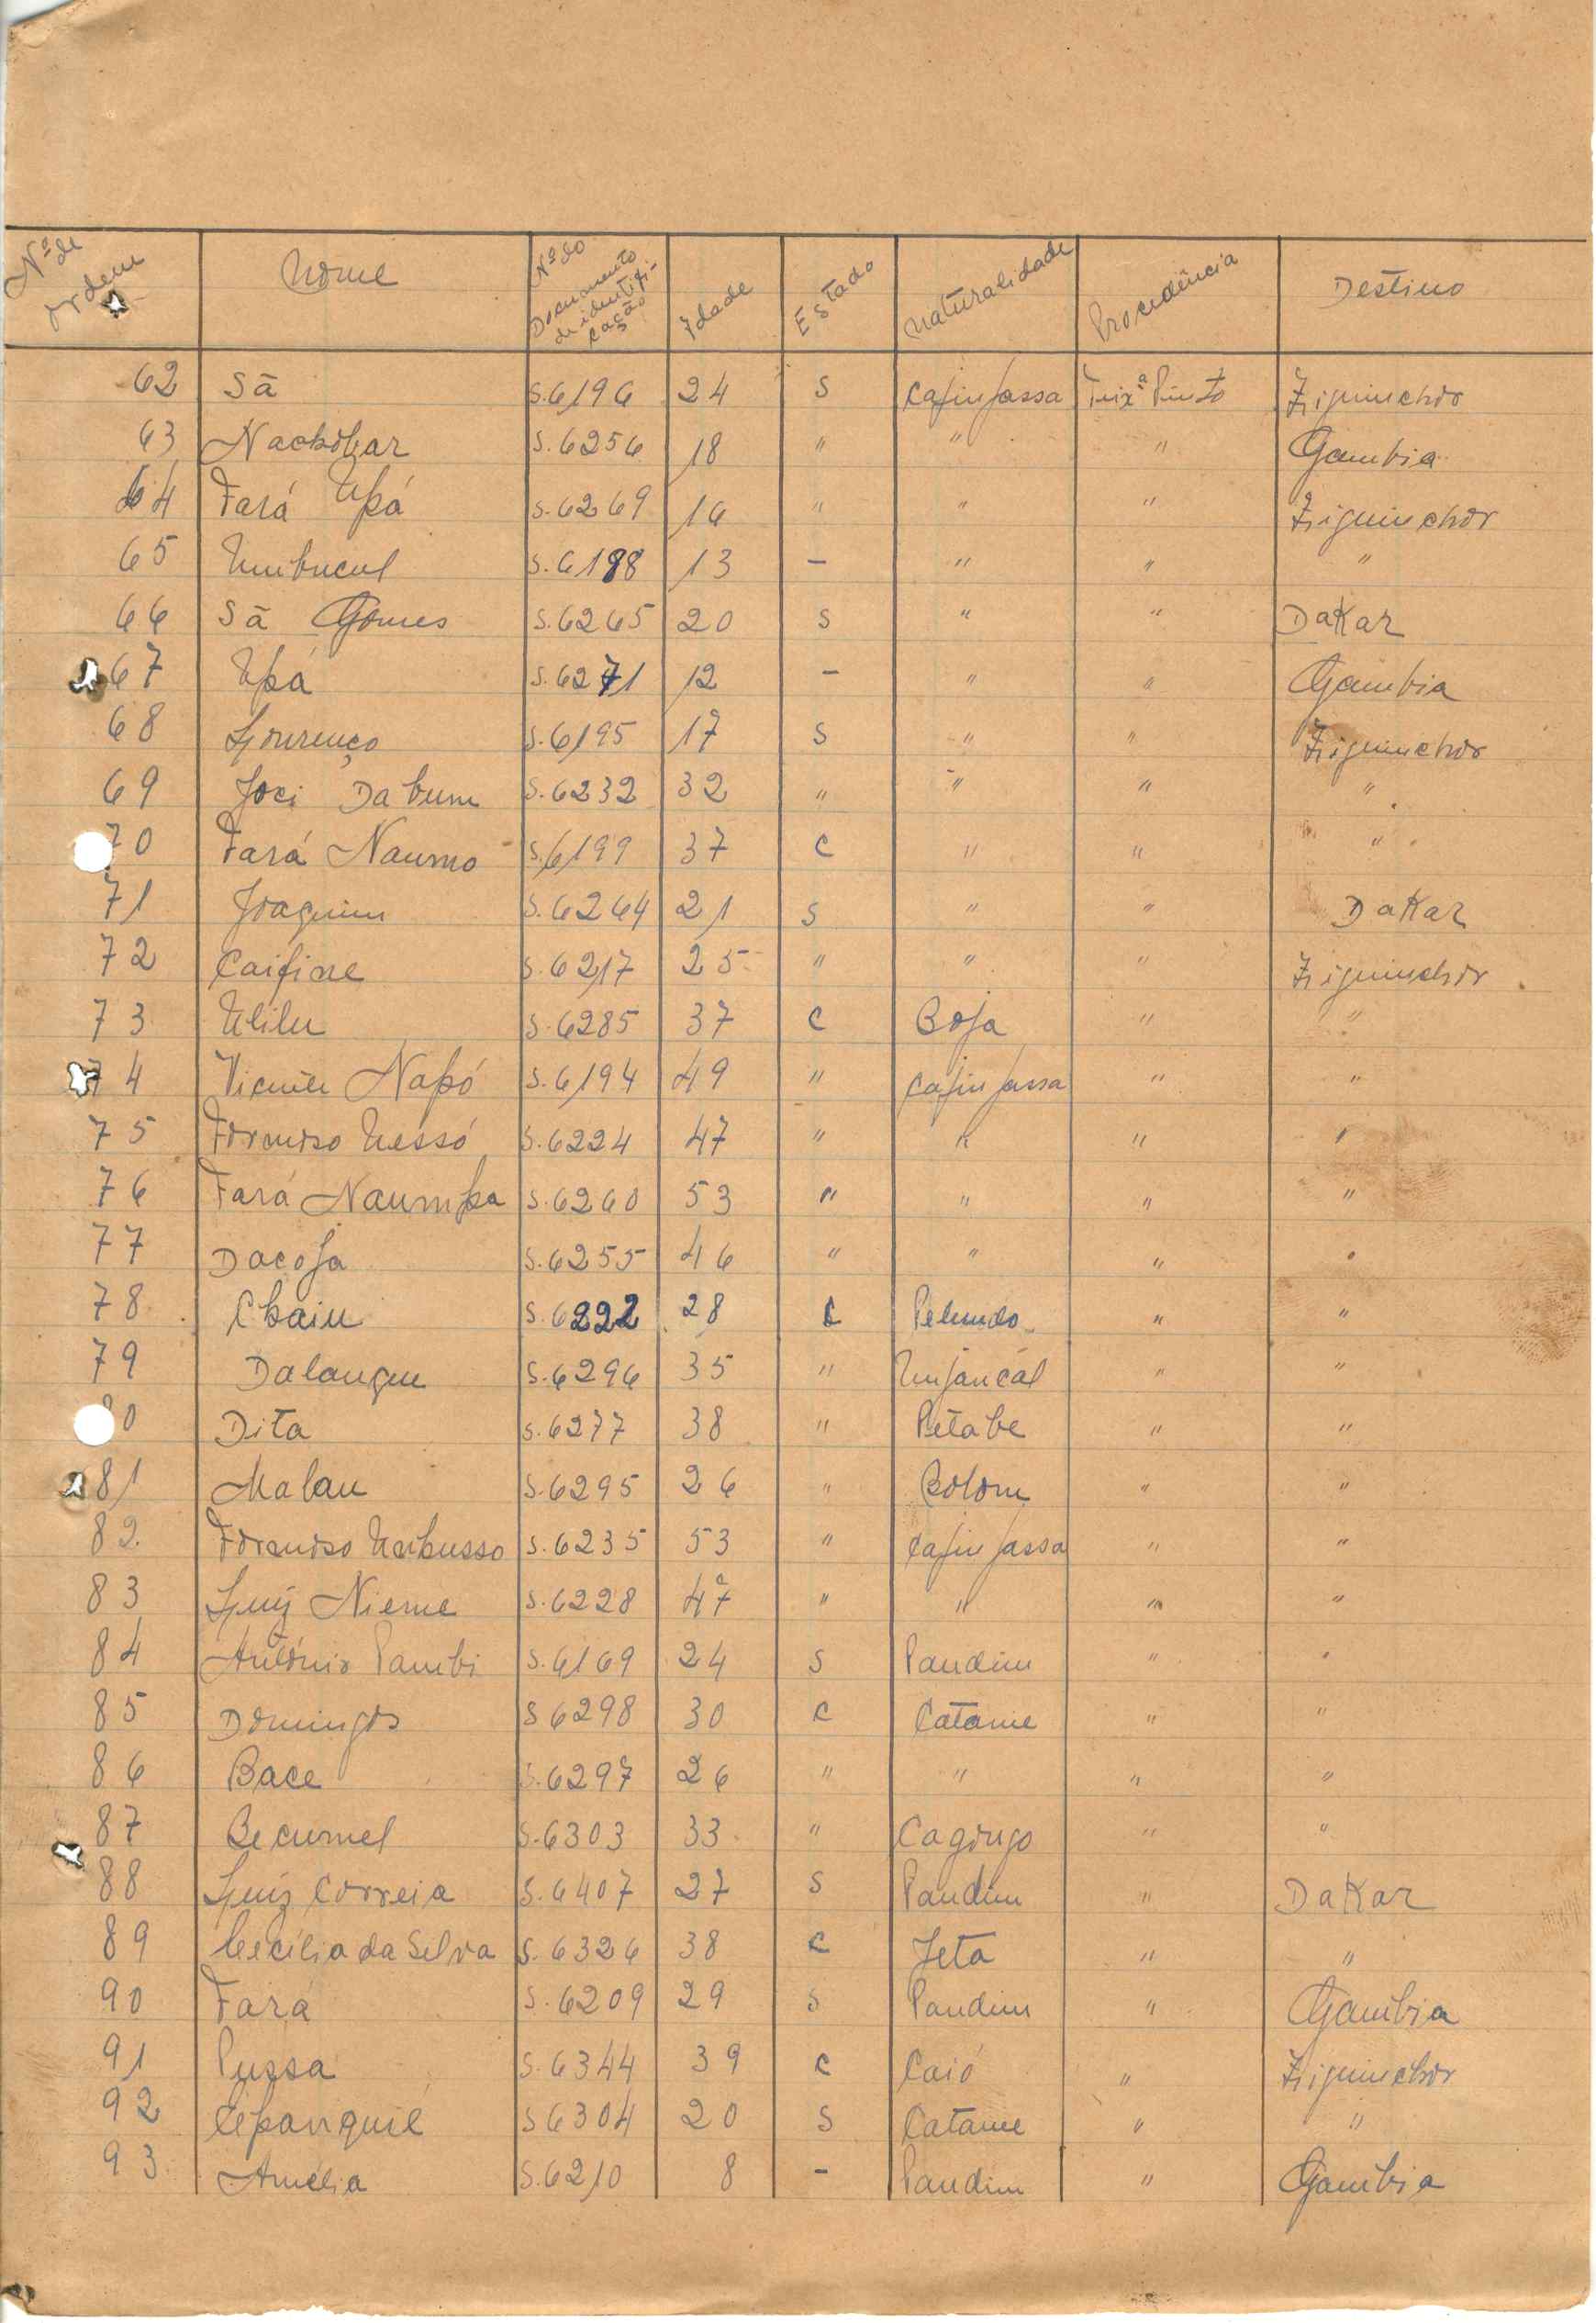 Nº de Ordem Nome Nº do Documento de identificação Idade Estado Naturalidade Procedência Destino
62 Sã S.6196 24 S Cajinjassa Teixª Pinto Ziguinchor
63 Nackobar S.6256 18 " " " Gambia
64 Fará Upá S.6269 16 " " " Ziguinchor
65 Umbucul S.6188 13 - " " "
66 Sã Gomes S.6265 20 S " " Dakar
67 Upá S.6271 12 - " " Gambia
68 Lourenço S.6195 17 S " " Ziguinchor
69 Joci Dabum S.6232 32 " " " "
70 Fará Naumo S.6199 37 C " " "
71 Joaquim S.6264 21 S " " Dakar
72 Caifine S.6217 25 " " " Ziguinchor
73 Ulilu S.6285 37 C Boja " "
74 Vicente Napó S.6194 49 " Cajinjassa " "
75 Formoso Uessó S.6224 47 " " " "
76 Fará Naumpa S.6260 53 " " " "
77 Dacoja S.6255 46 " " " "
78 S.6222 28 C Pelundo " "
79 Dalangue S.6296 35 " Unjancál " "
80 Dita S.6277 38 " Petabe " "
81 Malau S.6295 26 " Bolom " "
82 Formoso S.6235 53 " Cajinjassa " "
83 Luiz Nieme S.6228 47 " " " "
84 António Pambi S.6169 24 S Pandim " "
85 Domingos S 6298 30 C Catame " "
86 Bace S.6297 26 " " " "
87 Becumel S.6303 33 " Cagongo " "
88 Luiz Correia S.6407 27 S Pandim " Dakar
89 Cecília da Selva S.6326 38 C Jeta " "
90 Fará S.6209 29 S Pandim " Gambia
91 Pussa S.6344 39 C Caió " Ziguinchor
92 S 6304 20 S Catame " "
93 Amélia S.6210 8 - Pandim " Gambia